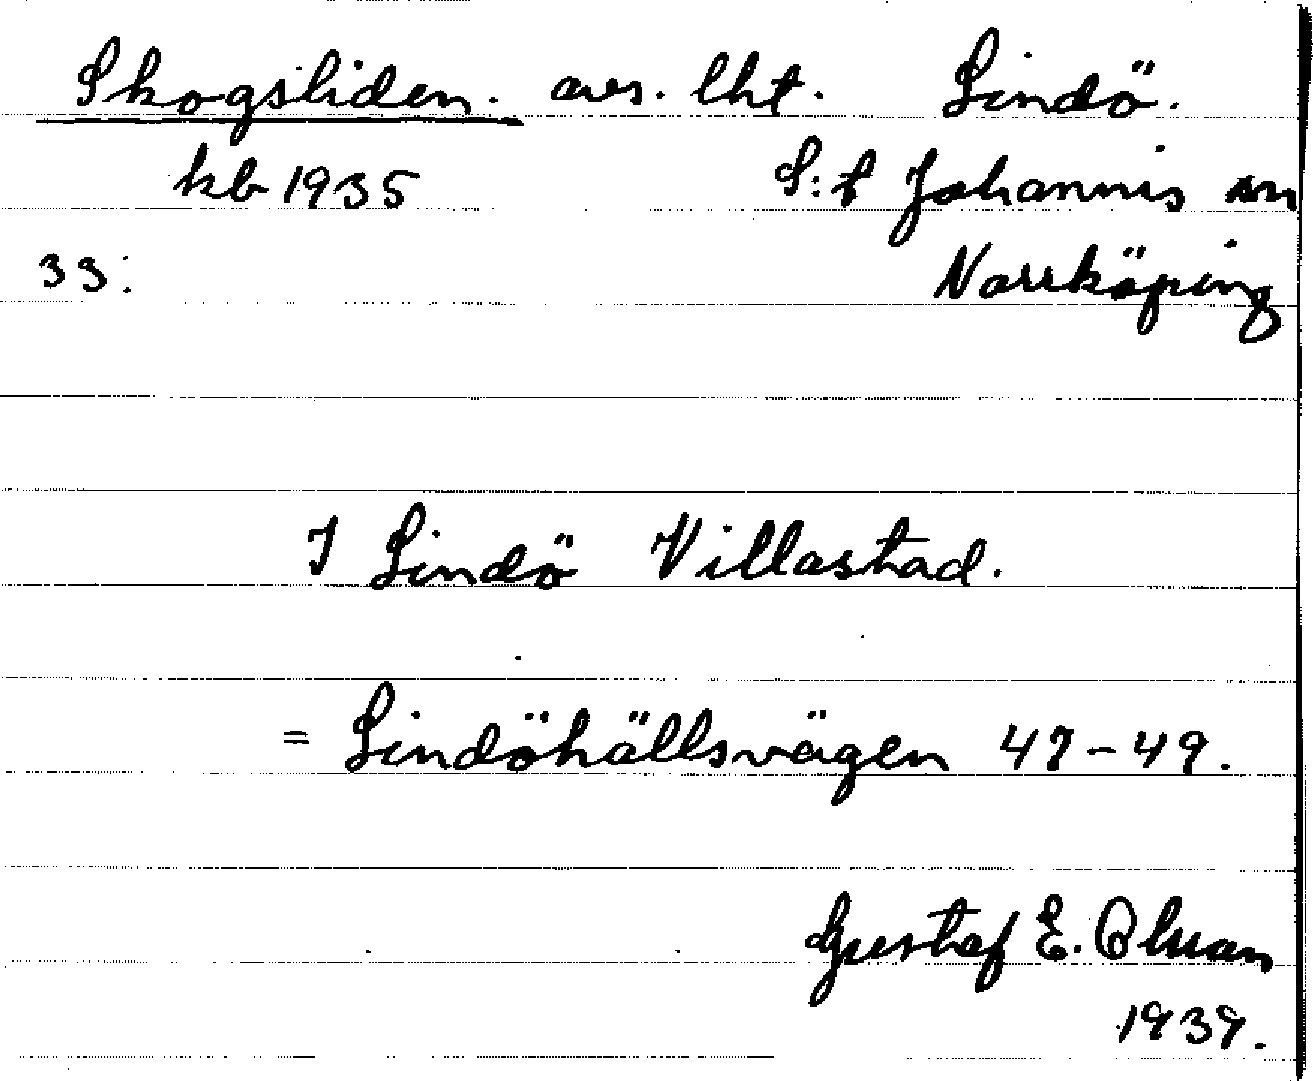 Skogsliden. avs. lht. Lindö.
kb 1935 S:t Johannis sn
33: Norrköping
I Lindö Villastad.
= Lindöhällsvägen 47-49.
Gustaf E. Olman
1939.